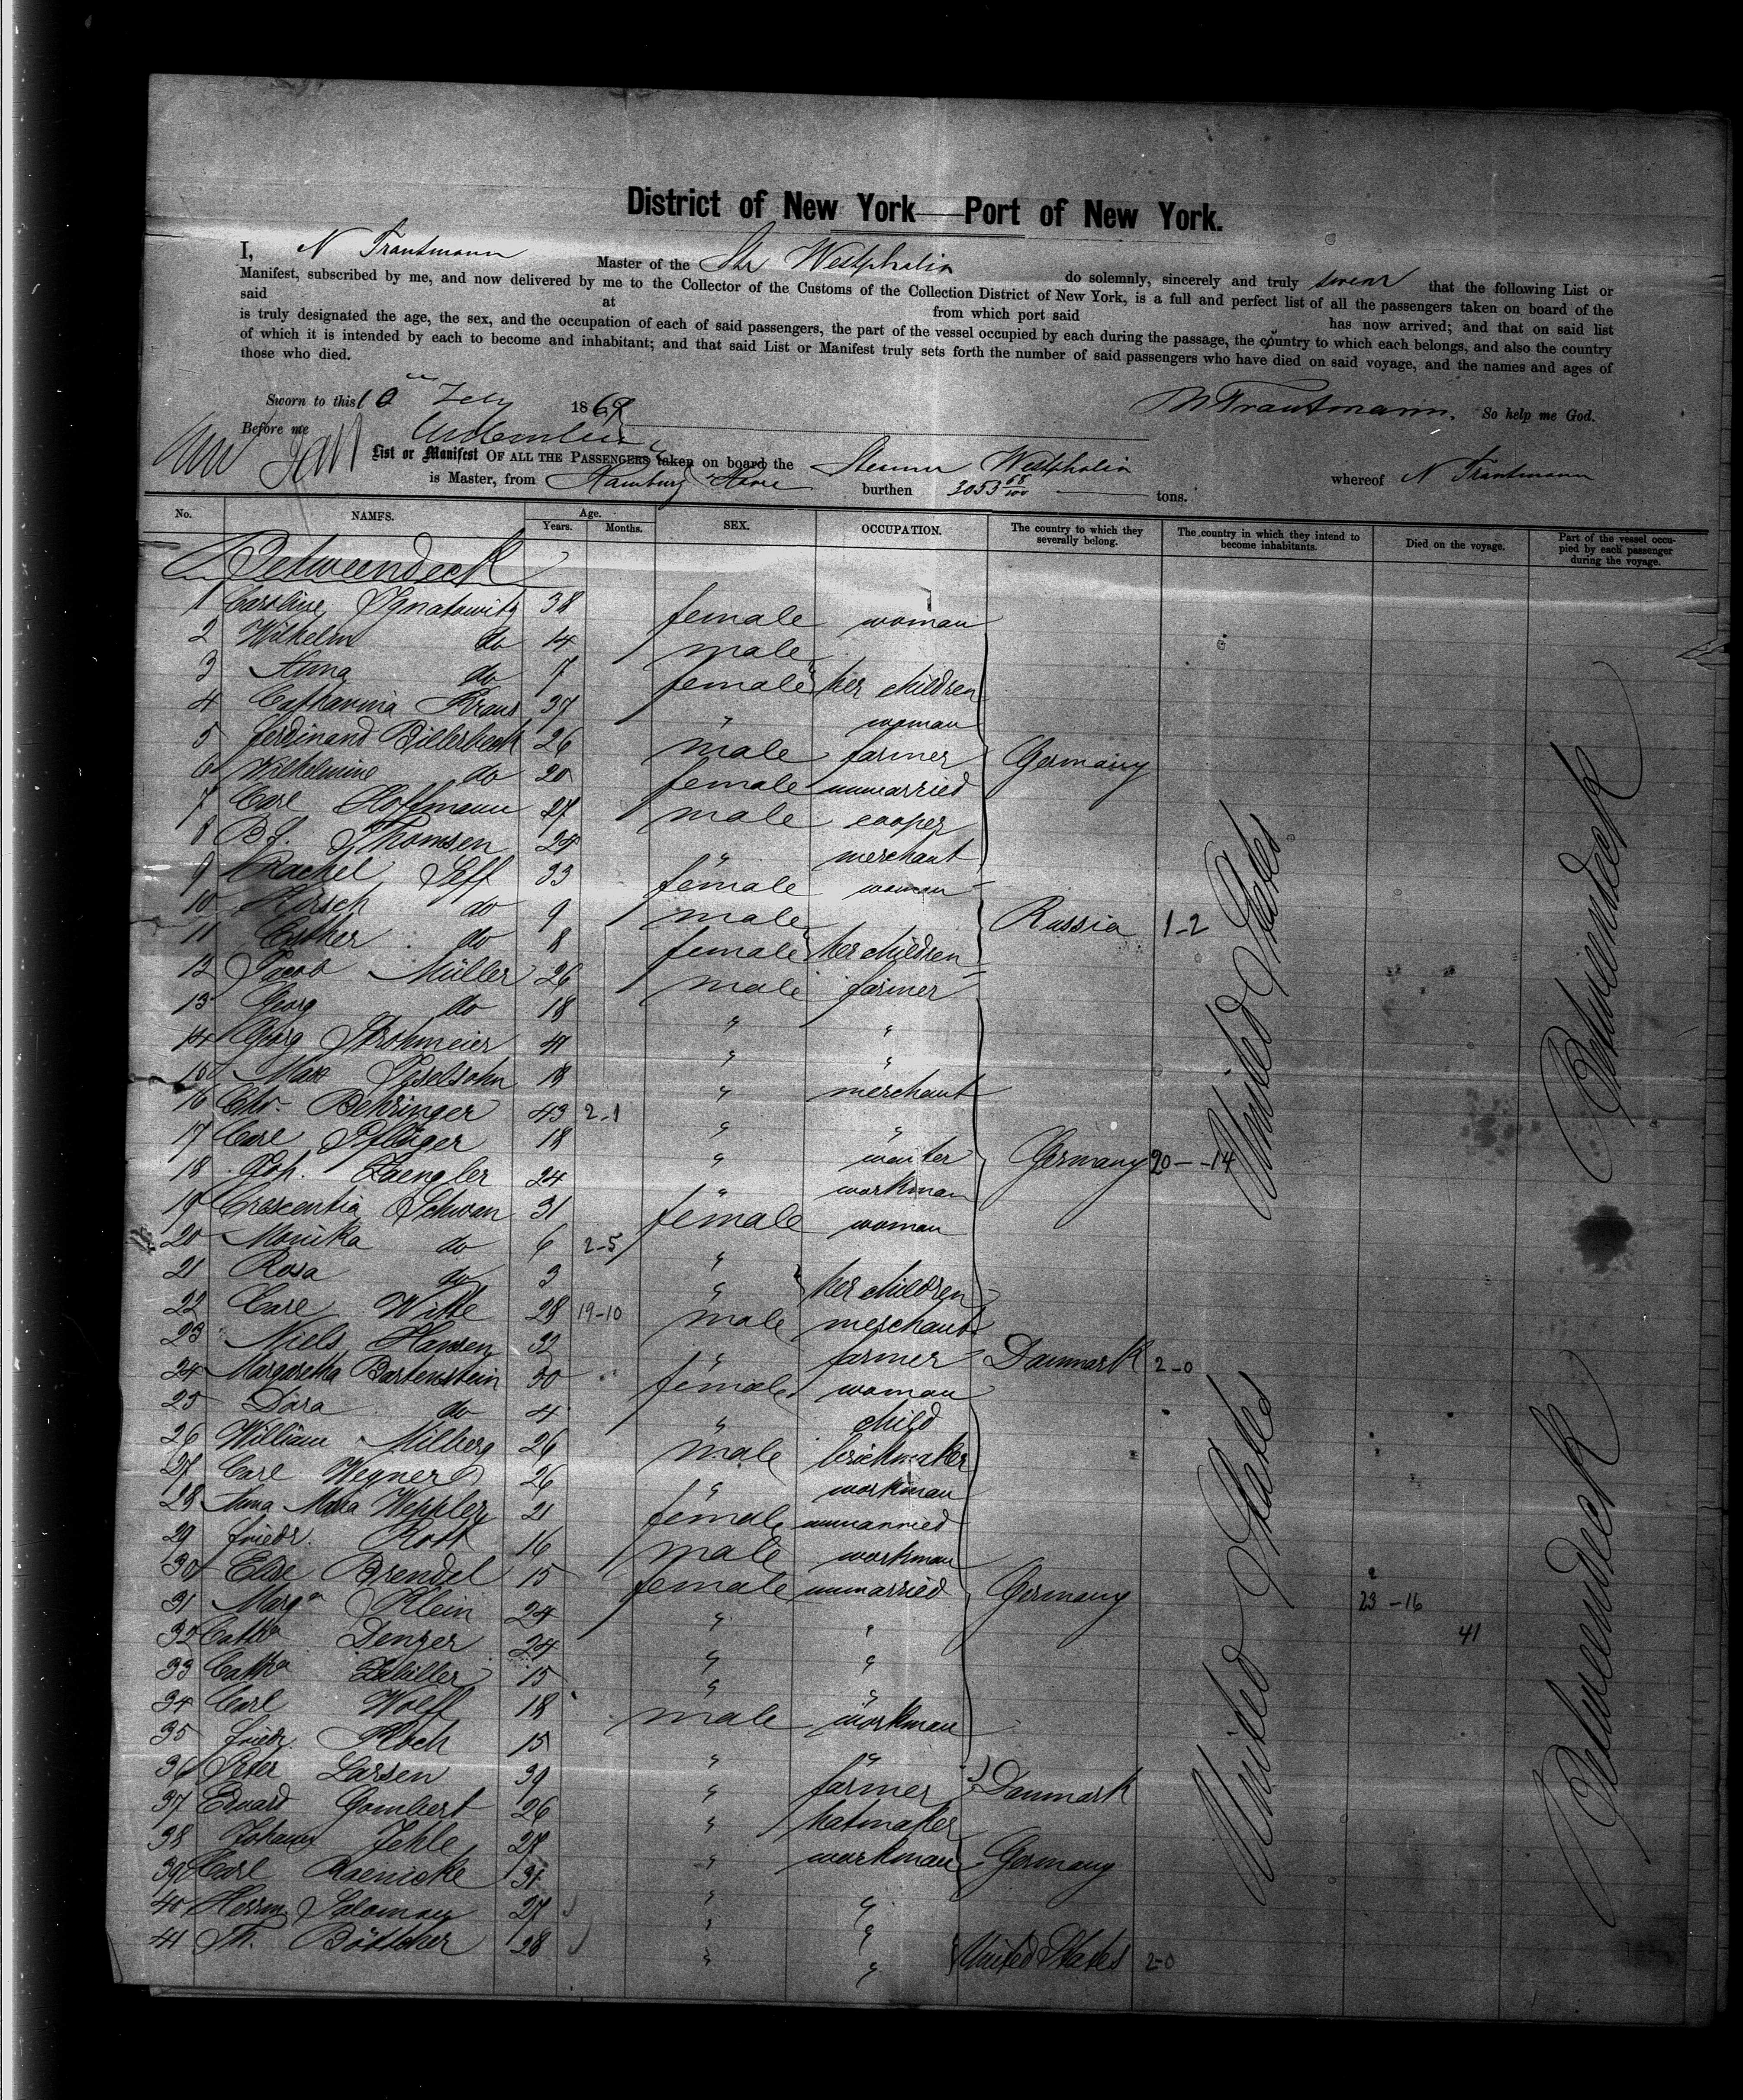 District of New York—Port of New York.
I, N Trautmann Master of the Str Westphalia do solemnly, sincerely and truly swear that the following List or
Manifest, subscribed by me, and now delivered by me to the Collector of the Customs of the Collection District of New York, is a full and perfect list of all the passengers taken on board of the
said at from which port said has now arrived; and that on said list
is truly designated the age, the sex, and the occupation of each of said passengers, the part of the vessel occupied by each during the passage, the country to which each belongs, and also the country
of which it is intended by each to become and inhabitant; and that said List or Manifest truly sets forth the number of said passengers who have died on said voyage, and the names and ages of
those who died.
Sworn to this 10 Feby 1869 N Trautmann. So help me God.
Before me
List or Manifest OF ALL THE PASSENGERS taken on board the Steamer Westphalia whereof N Trautmann
is Master, from Hamburg Havre burthen 3053 68/100 tons.
No. NAMES. Age. Years. Months. SEX. OCCUPATION. The country to which they severally belong. The country in which they intend to become inhabitants. Died on the voyage. Part of the vessel occupied by each passenger during the voyage.
Betweendeck
1 Caroline Ignatowitz 38 female woman
2 Wilhelm do 14 male
3 Anna do 7 female her children
4 Catharina Kraus 37 " woman
5 Ferdinand Billerbeck 26 male farmer Germany
6 Wilhelmine do 20 female unmarried
7 Carl Hoffmann 27 male cooper
8 Thomsen 24 " merchant
9 Rachel 33 female woman
10 Hirsch do 9 male Russia 1-2
11 Esther do 8 female her children
12 Jacob Müller 26 male farmer
13 Georg do 18 " "
14 Georg Strohmeier 41 " "
15 Max Isselsohn 18 " merchant
16 Chr. Behringer 43 2-1 " "
17 Carl Pflüger 18 " Germany 20--14
18 Joh. Zaengler 24 " workman
19 Crescentia Schwan 31 female woman
20 Monika do 6 2-5 "
21 Rosa do 3 " her children
22 Carl Witte 28 19-10 male merchant
23 Niels Hansen 32 " farmer Danmark 2-0
24 Margaretha Bartenstein 30 female woman
25 Dora do 4 " child
26 William Milberg 26 male brickmaker
27 Carl Wegner 26 " workman
28 Anna Maria Weppler 21 female unmarried
29 Friedr. Rott 16 male workman
30 Elise Brendel 15 female unmarried Germany
31 Marga Klein 24 " " 23-16
32 Catha Denzer 24 " " 41
33 Catha 15 " "
34 Carl Wolff 18 male workman
35 Friedr. Koch 15 " "
36 Peter Larsen 39 " farmer Danmark
37 Eduard Gombert 26 " hatmaker
38 Johann Jehle 27 " workman Germany
39 Carl Raenicke 31 " "
40 Herrm. Salomon 27 " "
41 Th. Böttcher 28 " " United States 2-0
United States
United States
Betweendeck
Betweendeck